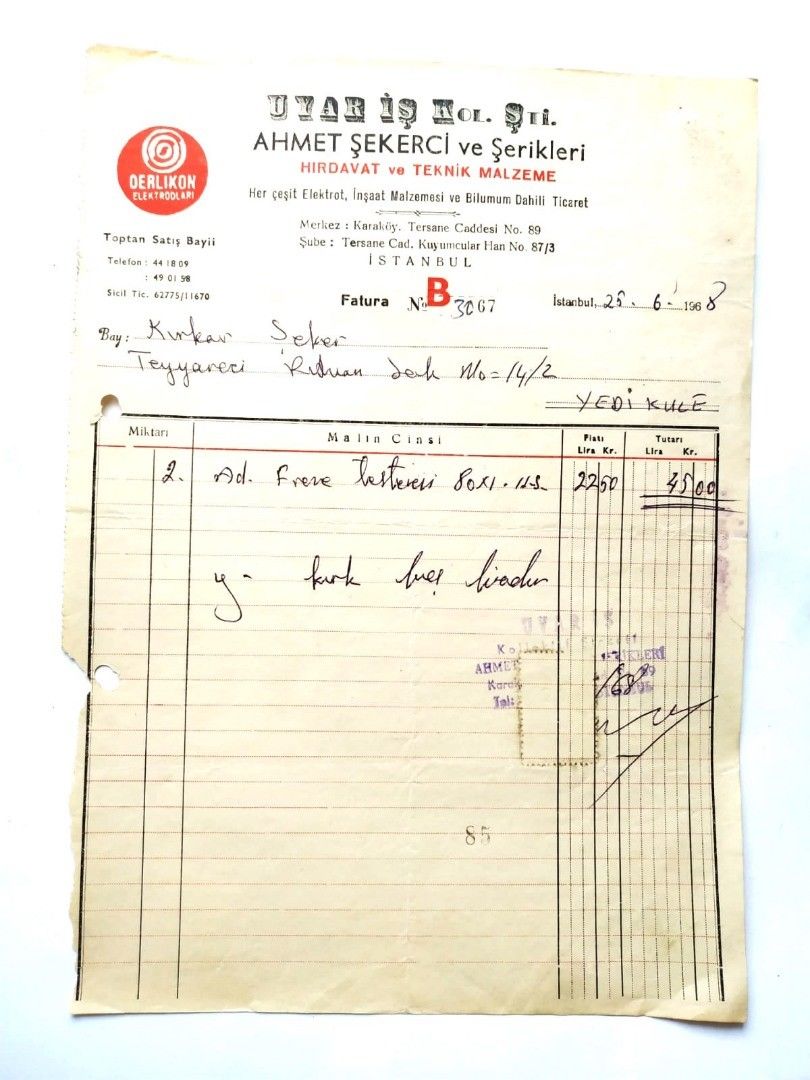 UYAR İŞ KOL. ŞTİ.
AHMET ŞEKERCİ ve Şerikleri
HIRDAVAT ve TEKNİK MALZEME
Her çeşit Elektrot, İnşaat Malzemesi ve Bilumum Dahili Ticaret
OERLIKON
ELEKTRODLARI
Merkez : Karaköy. Tersane Caddesi No. 89
Şube : Tersane Cad. Kuyumcular Han No. 87/3
İSTANBUL
Toptan Satış Bayii
Telefon : 44 18 09
: 49 01 58
Sicil Tic. 62775/11670
Fatura № B 3067
İstanbul, 25. 6. 1968
Bay: Kırkar Şeker
Teyyareci No=14/2
YEDİ KULE
Miktarı Malın Cinsi Fiatı Lira Kr. Tutarı Lira Kr.
2. Ad. Freze testeresi 80x1. 2250 4500
y- kırk beş liradır
UYAR İŞ
AHMET
Karak
Tel:
85